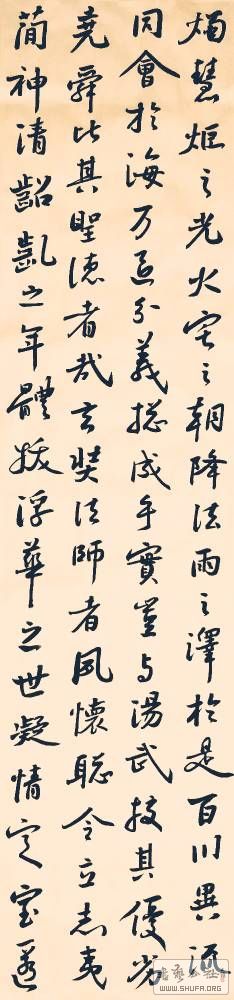 燭慧炬之光火宅之朝降法雨之澤於是百川異流
同會於海万區分義揔成乎實豈与湯武校其優劣
堯舜比其聖德者哉玄奘法師者夙懷聡令立志夷
簡神清齠齔之年體拔浮華之世凝情定室匿
WWW.SHUFA.ORG